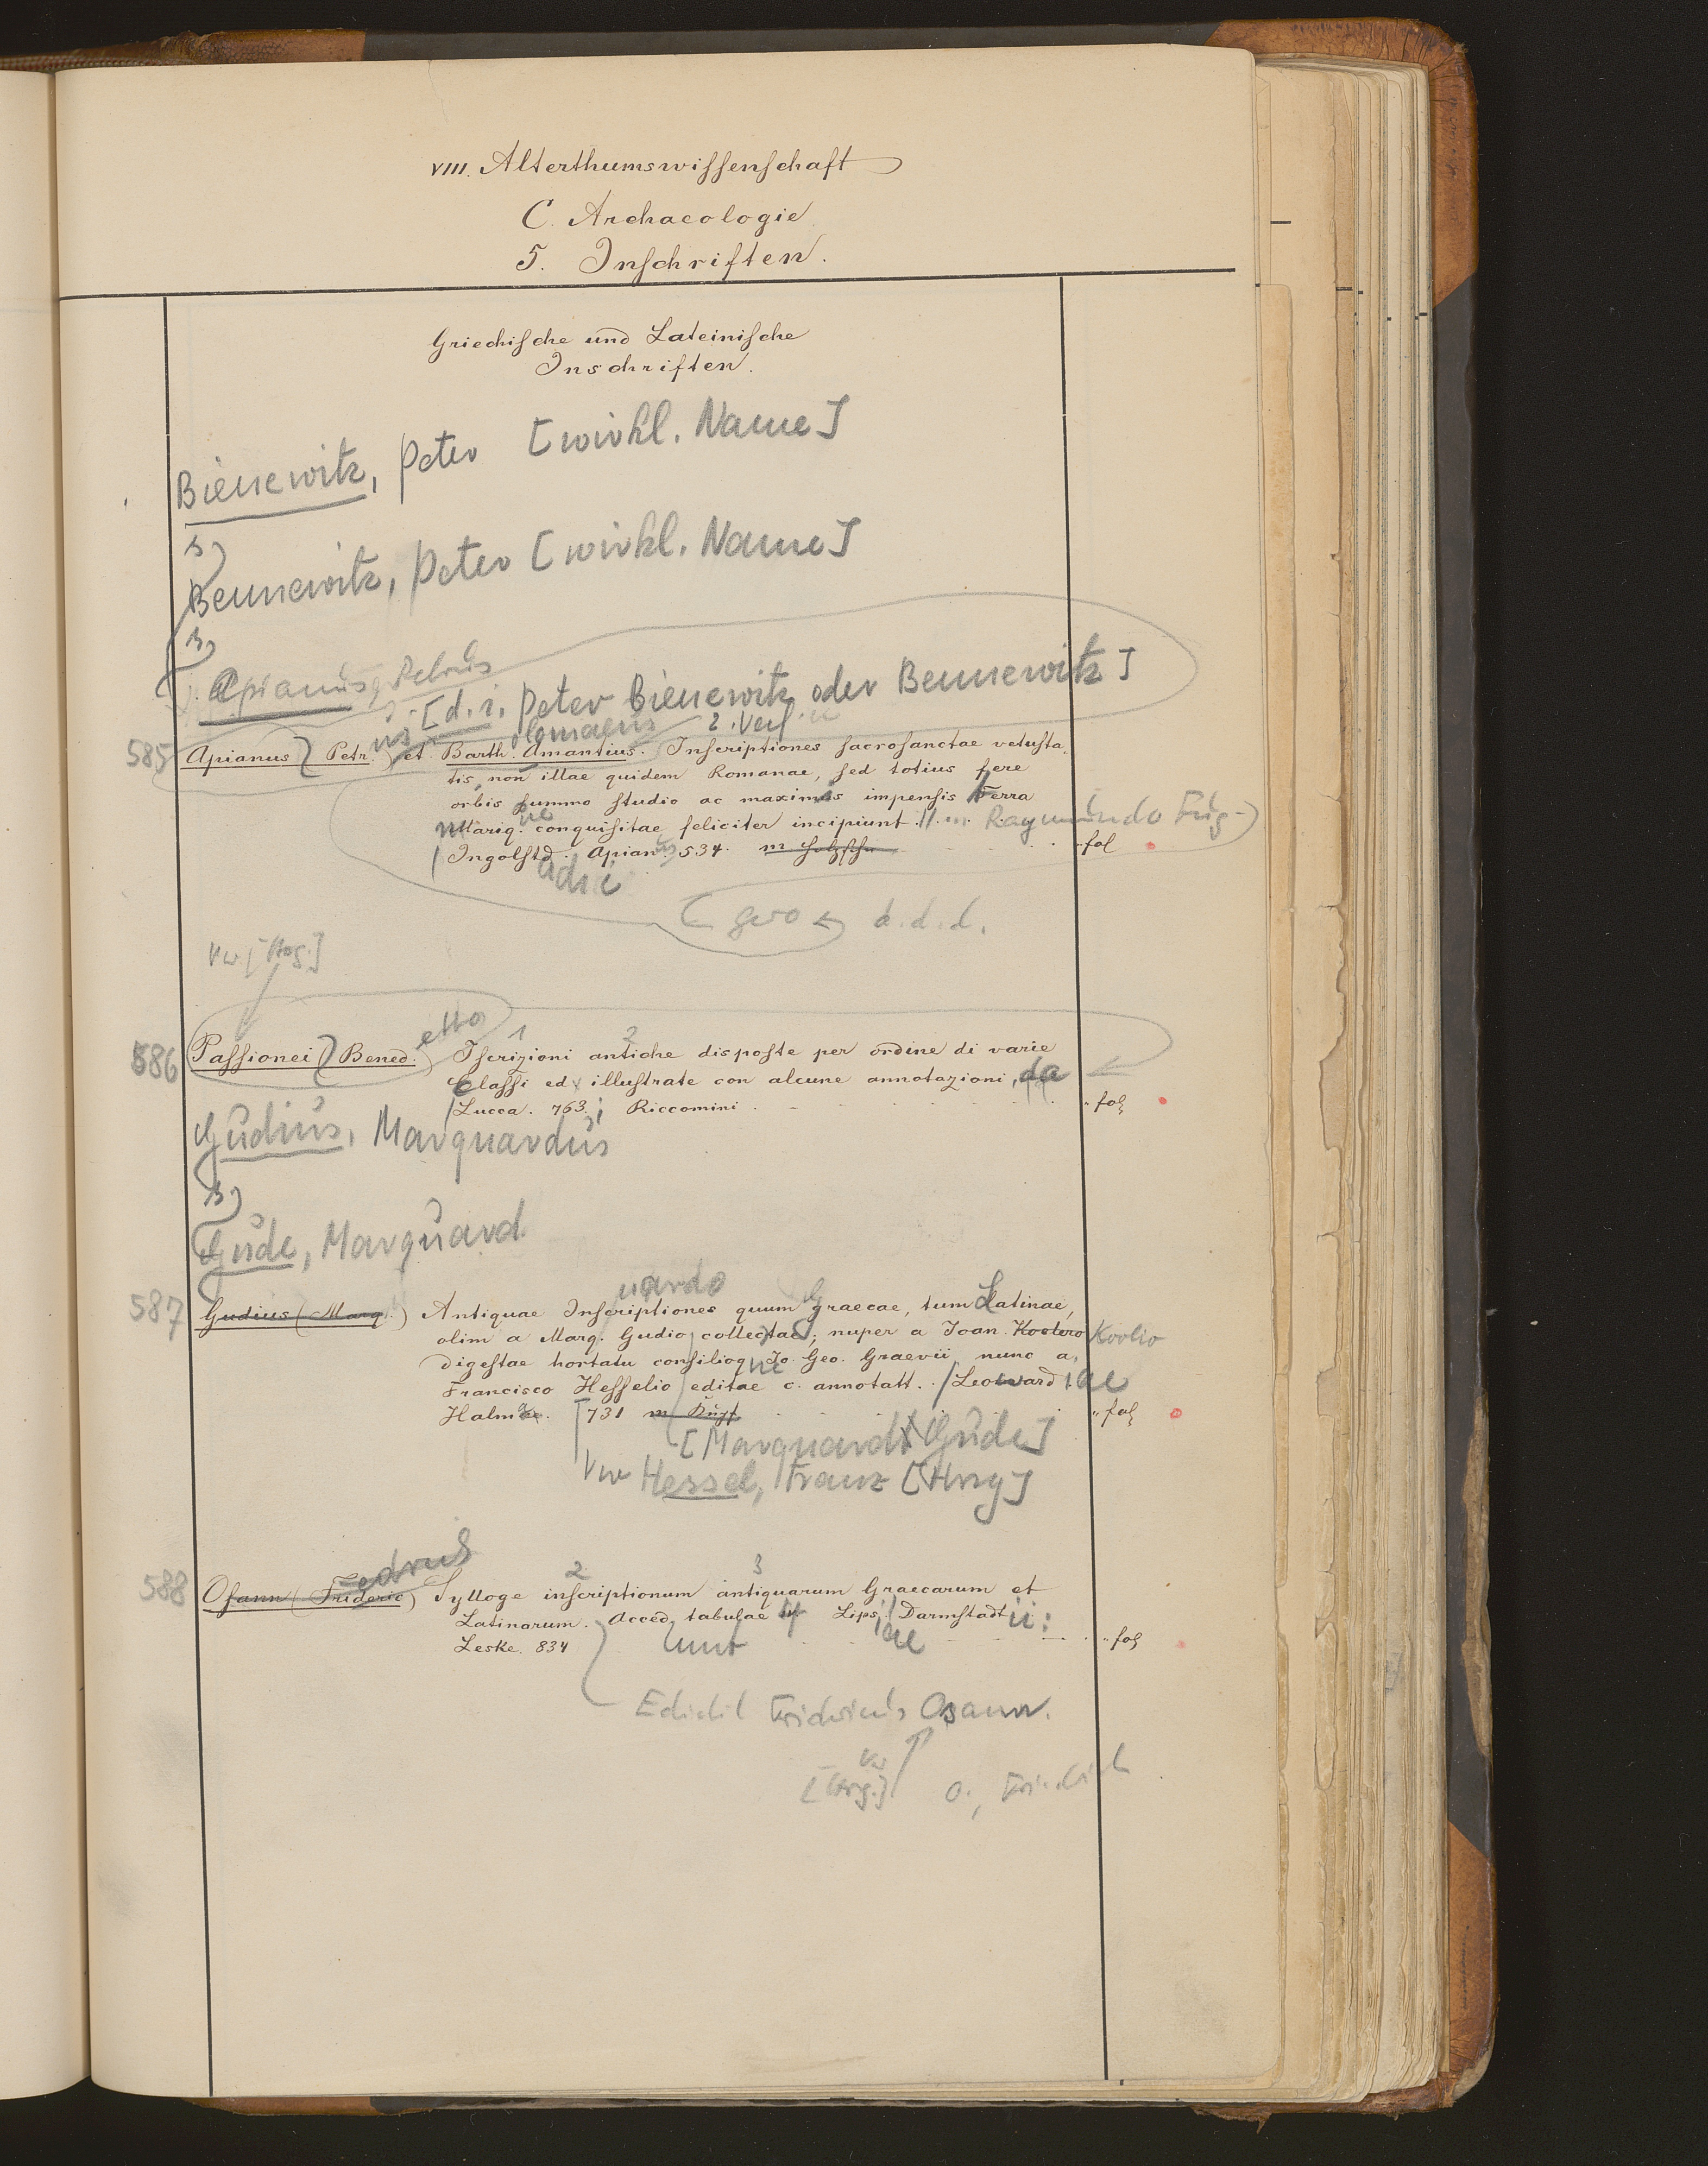 VIII. Alterthumswissenschaft
C. Archaeologie
5. Inschriften.
Griechische und Lateinische
Inschriften.
Bienewitz, Peter [wirkl. Name]
s)
Bennewitz, Peter [wirkl. Name]
s)
Apianus, Petrus
[d. i. Peter Bienewitz oder Bennewitz]
us olomaeus 2. Verf.
585 Apianus (Petr.) et Barth. Amantius. Inscriptiones sacrosanctae vetusta,
tis, non illae quidem Romanae, sed totius fere
orbis summo studio ac maximis impensis Terra
Mariq. ue conquisitae feliciter incipiunt. Raymundo Fug-
Ingolstd. Apian. 534. m Holzschn fol
adii
gero d. d. d.
Vw [Hrg.]
etto 1 2
586 Passionei (Bened.) Iscrizioni antiche disposte per ordine di varie
Classi ed illustrate con alcune annotazioni, da
Lucca. 763; Riccomini " fol
Gudius, Marquardus
s)
Gude, Marquard
uardo
587 Gudius (Marq.) Antiquae Inscriptiones quum Graecae, tum Latinae,
olim a Marq. Gudio collectae; nuper a Joan. Kootero Koolio
digestae hortatu consilioq ue Jo. Geo. Graevii nunc a,
Francisco Hesselio editae c. annotatt. Leoward. iae
Halmae. 731 m Kupf " fol
[Marquard Gude]
Vw Hessel, Franz [Hrsg]
edricus 2 3
588 Osann (Frideric) Sylloge inscriptionum antiquarum Graecarum et
Latinarum. Acced. tabulae Lips. Darmstadt ii:
unt iae
Leske. 834 " fol
Edidit Fridricus Osann.
Vw
[Hrg.] O., Friedrich